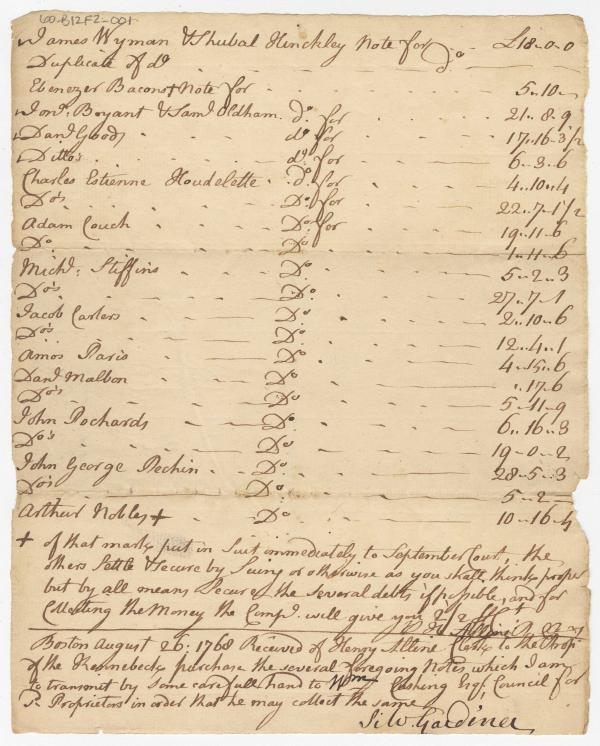 60-B12F2-001
James Wyman & Shubal Hinckley Note for Do £18-0-0
Duplicate of do
Ebenezer Bacons + Note for 5..10..
Jona: Bryant & Saml Oldham do for 21..8..9
Danl Goods do for 17..16..3 1/2
Ditto's do for 6..3..6
Charles Estienne Houdelette do for 4..10..4
Do's Do for 22..7..1 1/2
Adam Couch Do for 19..11..6
Do Do 1..11..6
Michl: Stiffins Do 5..2..3
Do's Do 27..7..1
Jacob Carlers Do 2..10..6
Do's Do 12..4..1
Amos Paris Do 4..15..6
Danl Malbon Do ..17..6
Do's 5..11..9
John Pochards Do 6..16..3
Do's Do 19..0..2
John George Pechin Do 28..5..3
Do's Do 5..2
Arthur Nobles + Do 10..16..4
+ of that mark, put in Suit immediately to September Court, the
others Settle & Secure by Suing or otherwise as you shall think proper
but by all means Secure the several debts if possible, and for
Collecting the Money the Compy. will give you
Boston August 26: 1768 Received of Henry Alline Clark to the Prop
of the Kennebeck purchase the several foregoing Notes which I am
to transmit by some carefull hand to Wm Cushing Esqr, Council for
sd. Proprietors in order that he may collect the same
Silv. Gardiner